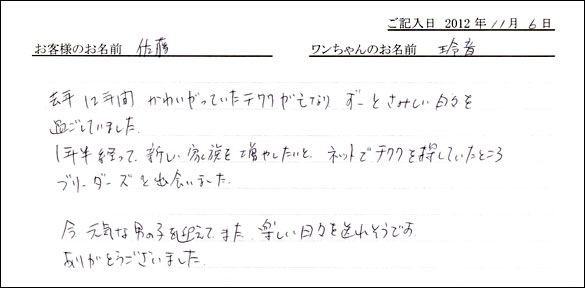 ご記入日 2012 年 11 月 6 日
お客様のお名前 佐藤 ワンちゃんのお名前 玲音
去年 12年間 かわいがっていたチワワが亡くなり ずーとさみしい日々を
過ごしていました.
1年半経って、新しい家族を増やしたいと、ネットでチワワを探していたところ
ブリーダーズと出会いました.
今 元気な男の子を迎えて、また、楽しい日々を送れそうです
ありがとうございました.